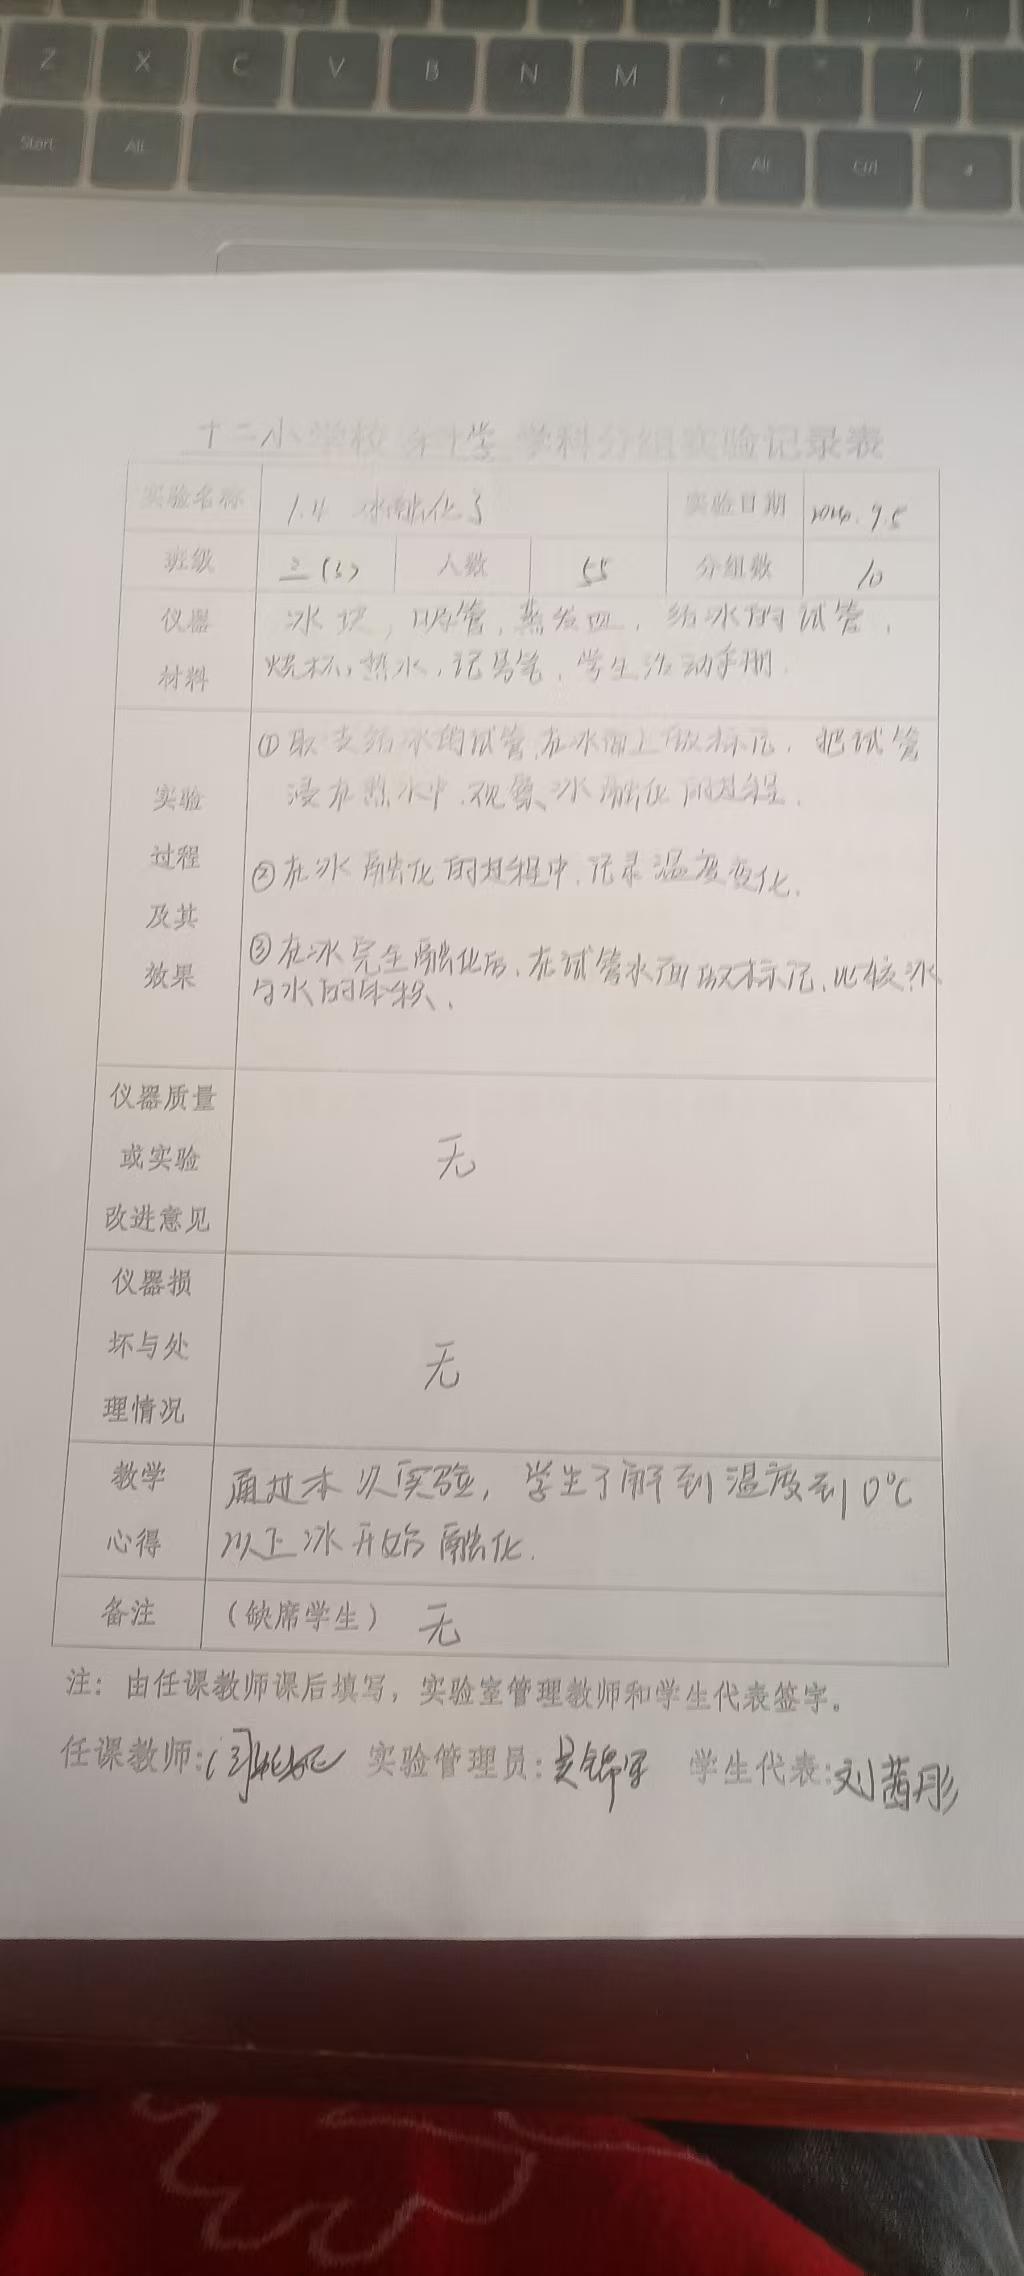 Z X C V B N M
Start Alt Alt Ctrl
十二小学校 科学 学科分组实验记录表
实验名称 1.4 冰融化了 实验日期 9.5
班级 三(3) 人数 55 分组数 10
仪器 冰块，吸管，蒸发皿，结冰的试管，
材料 烧杯，热水，记号笔，学生活动手册.
①取支结冰的试管,在冰面上做标记，把试管
浸在热水中.观察冰融化的过程.
实验
过程
及其
效果
②在冰融化的过程中.记录温度变化.
③在冰完全融化后,在试管水面做标记,比较冰
与水的体积.
仪器质量
或实验
改进意见
无
仪器损
坏与处
理情况
无
教学 通过本次实验，学生了解到温度到0℃
心得 以上冰开始融化.
备注 （缺席学生） 无
注：由任课教师课后填写，实验室管理教师和学生代表签字。
任课教师: 实验管理员: 学生代表:刘茜彤